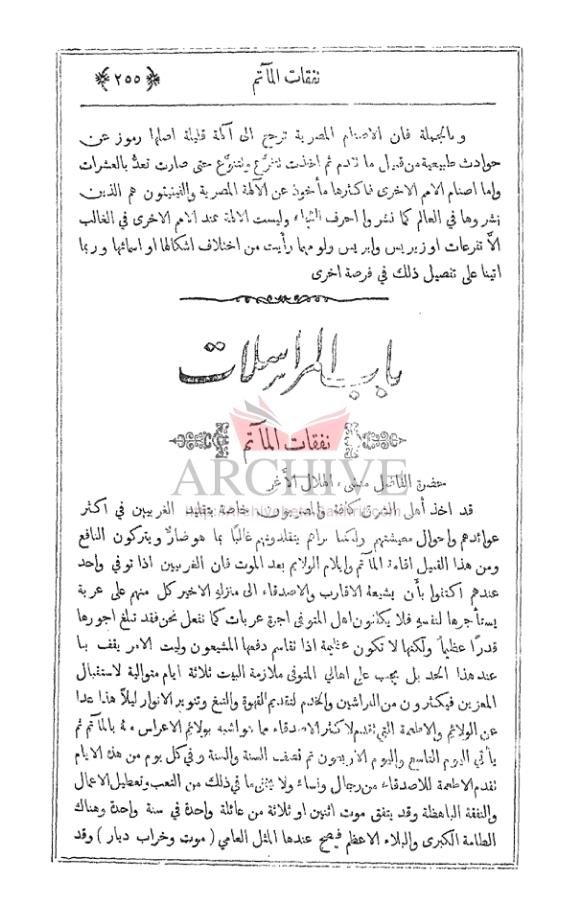 نفقات المآتم
﴿٢٥٥﴾
وبالجملة فان الاصنام المصرية ترجع الى آلهة قليلة اصلها رموز عن
حوادث طبيعية من قبيل ما تقدم ثم اخذت تتفرع وتتنوع حتى صارت تعدُّ بالعشرات
واما اصنام الامم الاخرى فاكثرها مأخوذ عن الآلهة المصرية والفينيقيون هم الذين
نشروها في العالم كما نشروا احرف الهجاء وليست الآلهة عند الامم الاخرى في الغالب
الاَّ تفرعات اوزيريس وايريس ولو مهما رأيت من اختلاف اشكالها او اسمائها وربما
اتينا على تفصيل ذلك في فرصة اخرى
باب المراسلات
نفقات المآتم
ARCHIVE
حضرة الفاضل منشىء الهلال الأغر
قد اخذ أهل الشرق كافة والمصريون خاصة بتقليد الغربيين في اكثر
عوائدهم واحوال معيشتهم ولكننا نراهم يتقلدونهم غالبًا بما هو ضارٌّ ويتركون النافع
ومن هذا القبيل اقامة المآتم وايلام الولايم بعد الموت فان الغربيين اذا توفي واحد
عندهم اكتفوا بأن يشيعهُ الاقارب والاصدقاء الى منزلهِ الاخير كل منهم على عربة
يستأجرها لنفسهِ فلا يكلفون اهل المتوفى اجرة عربات كما نفعل نحن فقد تبلغ اجورها
قدرًا عظيمًا ولكنها لا تكون عظيمة اذا تقاسم دفعها المشيعون وليت الامر يقف بنا
عند هذا الحد بل يجب على اهالي المتوفى ملازمة البيت ثلاثة ايام متوالية لاستقبال
المعزين فيكثرون من الفراشين والخدم لتقديم القهوة والتبغ وتنوير الانوار ليلاً هذا عدا
عن الولايم والاطعمة التي تقدم لاكثر الاصدقاء مما نواشبه بولايم الاعراس منهُ بالمآتم ثم
يأتي اليوم التاسع واليوم الاربعون ثم نصف السنة والسنة وفي كل يوم من هذه الايام
تقدم الاطعمة للاصدقاء من رجال ونساء ولا يخفى ما في ذلك من التعب وتعطيل الاعمال
والنفقة الباهظة وقد يتفق موت اثنين او ثلاثة من عائلة واحدة في سنة واحدة وهناك
الطامة الكبرى والبلاء الاعظم فيصح عندها المثل العامي ( موت وخراب ديار ) وقد